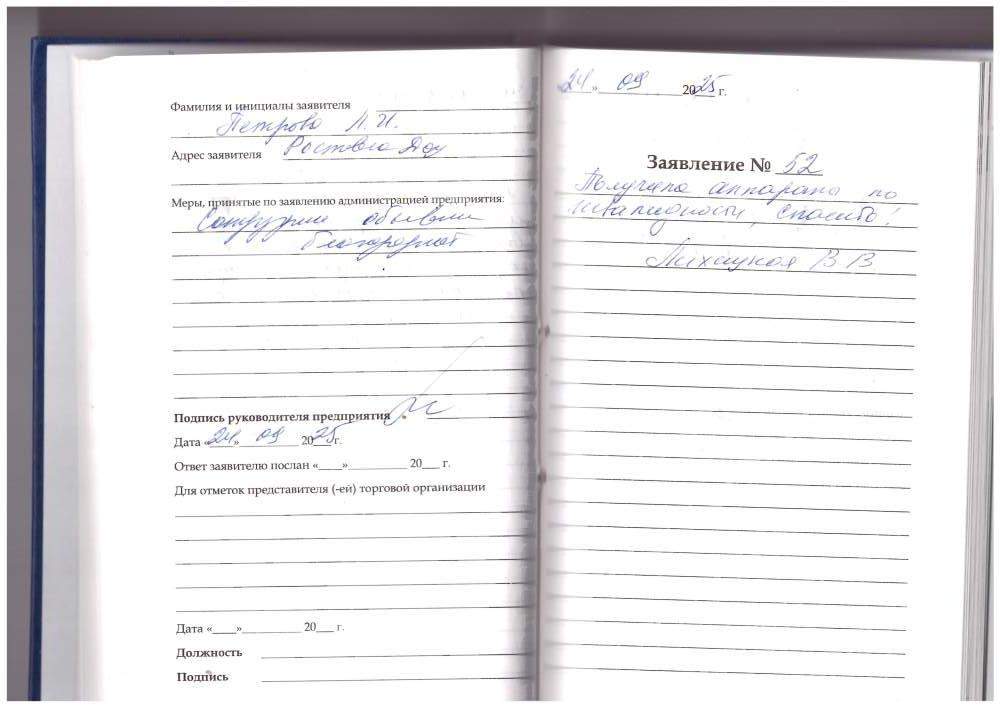 Фамилия и инициалы заявителя
Петрова Л.И.
Адрес заявителя Ростов
Меры, принятые по заявлению администрацией предприятия:
объявлен
Подпись руководителя предприятия
Дата «24» 09 2025 г.
Ответ заявителю послан «____»__________ 20___ г.
Для отметок представителя (-ей) торговой организации
Дата «____»__________ 20___ г.
Должность
Подпись
24 » 09 2025 г.
Заявление № 52
Получила аппараты по
инвалидности, спасибо!
В В